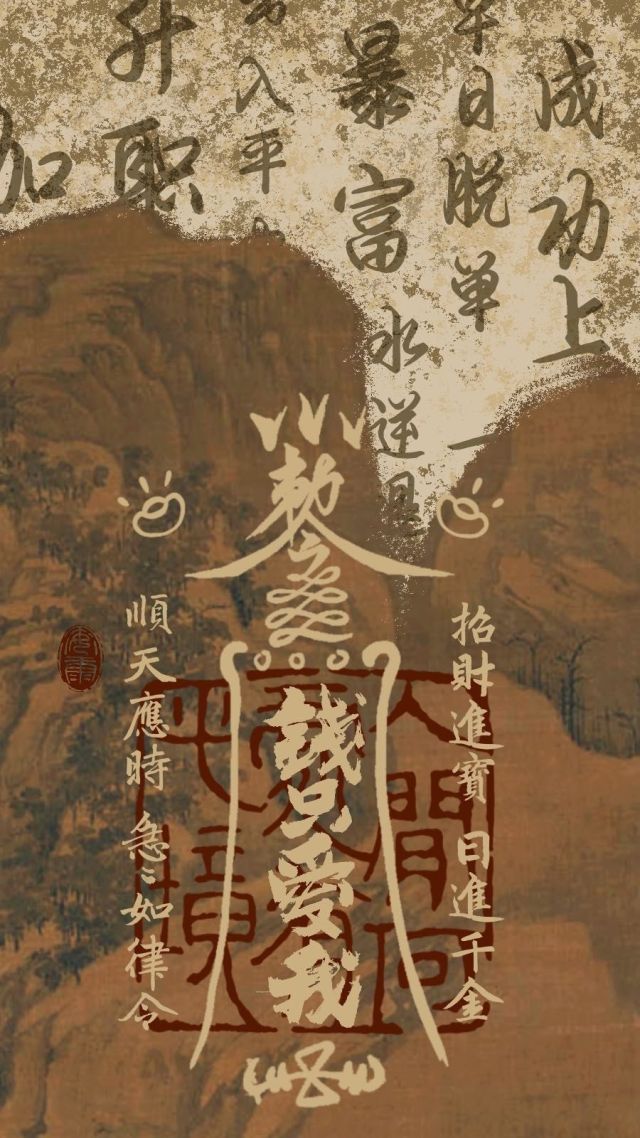 成功上
早日脱单
一
暴富
水逆
入平
升职
加
敕
招財進寶 日進千金
錢只愛我
順天應時 急々如律令
人間何